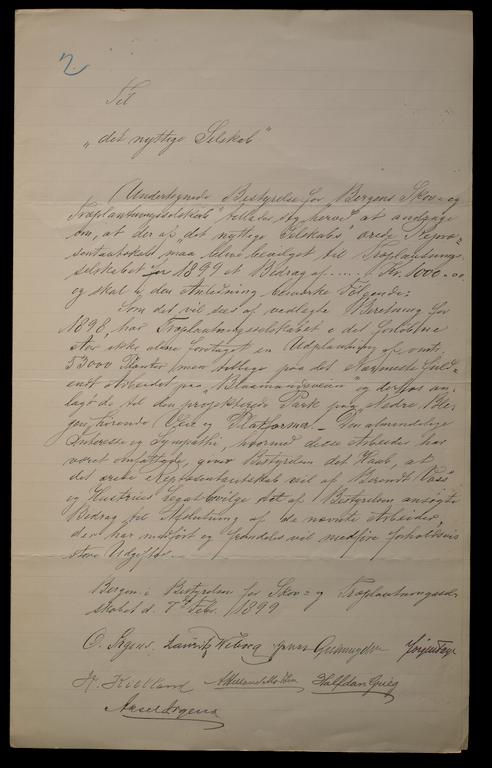 2.
Til
„det nyttige Selskab"
Undertegnede Bestyrelse for „Bergens Skov- og
Træplantningsselskab" tillader sig herved at andrage
om, at der af „det nyttige Selskabs" ærede Repræ-
sentantskab maa blive bevilget til Træplantnings-
selskabet for 1899 et Bidrag af ..... Kr. 1000 - 00
og skal i den Anledning bemærke Følgende:
Som det vil sees af vedlagte Beretning for
1898, har Træplantningsselskabet i det forløbne
Aar ikke alene foretaget en Udplantning af omtr.
53000 Planter, men tillige paa det Nærmeste fuld-
endt Arbeidet paa „Blaamandsveien" og derhos an-
lagt de til den projekterede Park paa Nedre Ble-
gen hørende Veie og Platformer. - Den almindelige
Interesse og Sympathi, hvormed disse Arbeider har
været omfattede, giver Bestyrelsen det Haab, at
det ærede Repræsentantskab vil af Berendt Voss'
og Hustrues Legat bevilge det af Bestyrelsen ansøgte
Bidrag til Afslutning af de nævnte Arbeider,
der har medført og fremdeles vil medføre forholdsvis
store Udgifter.
Bergen i Bestyrelsen for Skov- og Træplantningssel-
skabet d. 7de Febr. 1899
O. Irgens. Lauritz
J. Kielland Halfdan Grieg
Aksel Irgens